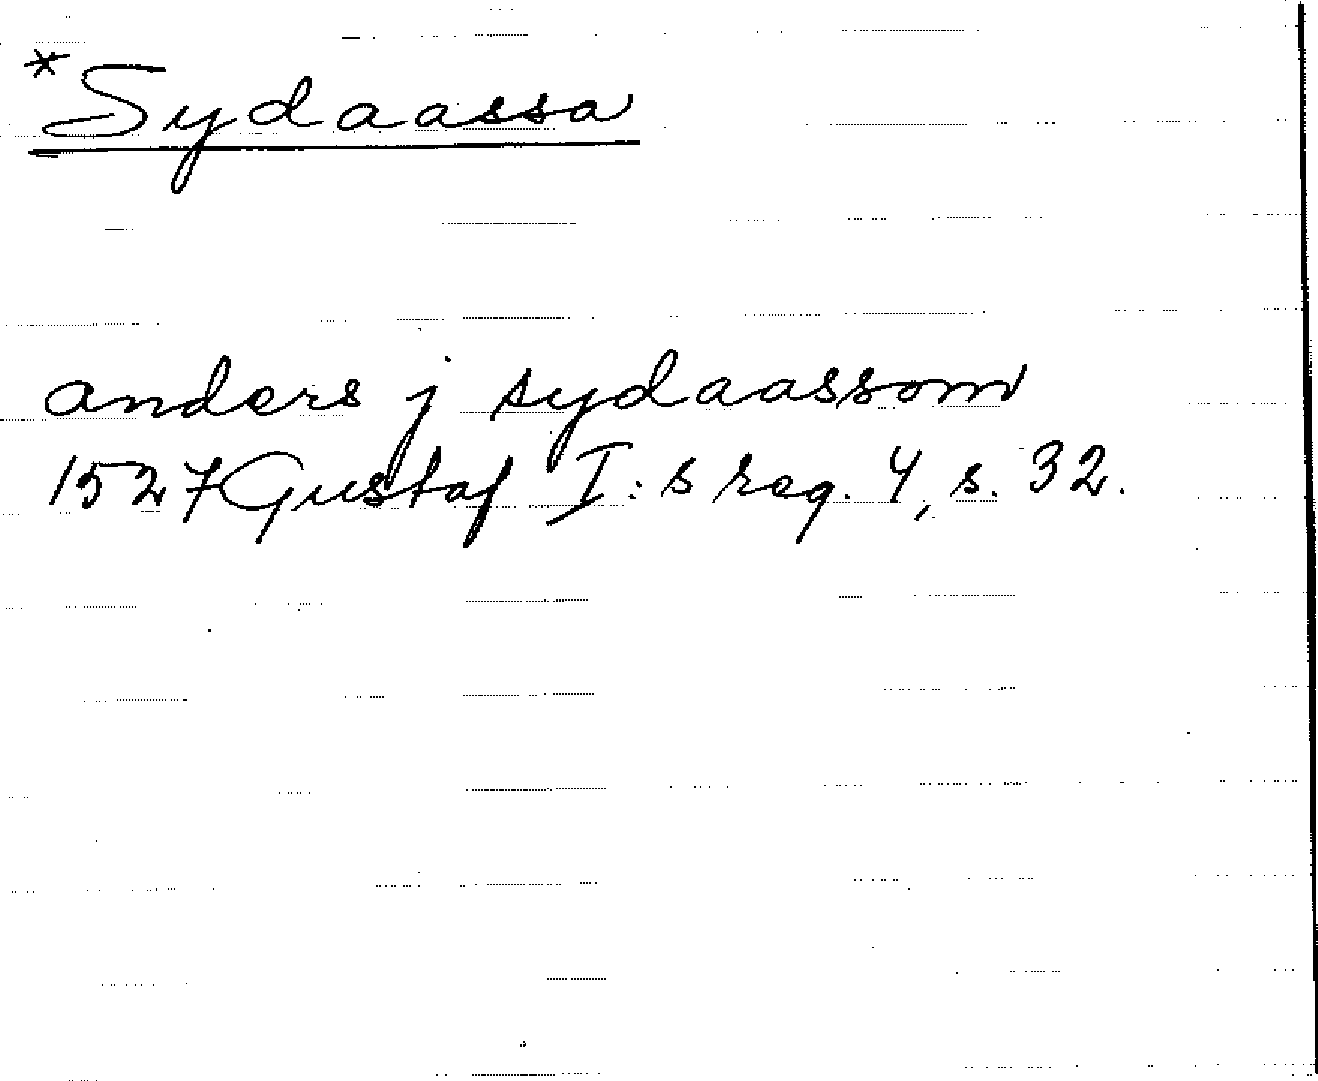 *Sydaassa
anders j sydaassom
1527 Gustaf I:s reg. 4, s. 32.